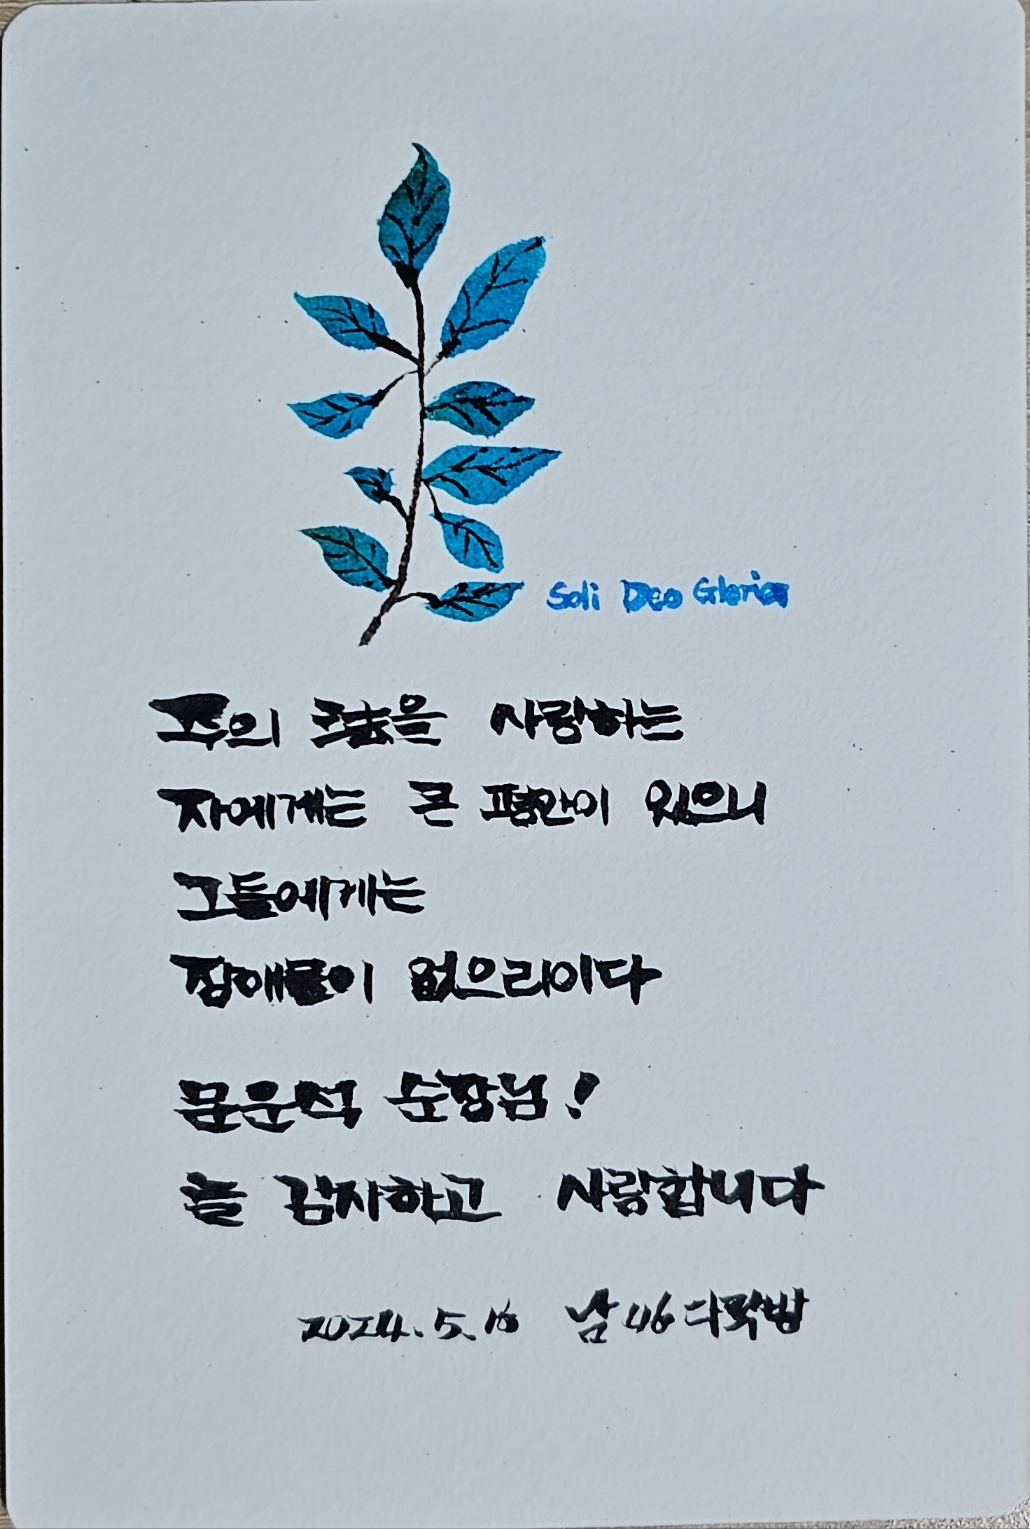 Soli Deo Gloria
주의 法을 사랑하는
자에게는 큰 평안이 있으니
그들에게는
장애물이 없으리이다
문운석 순장님!
늘 감사하고 사랑합니다
2024.5.16 남46다락방